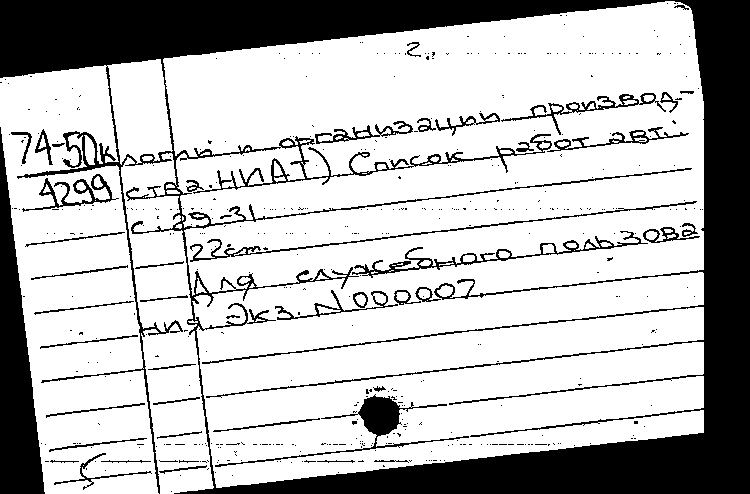 2.
74-50к логии и организации производ-
4299 ства. НИАТ) Список работ авт.:
с. 29-31
22см.
Для служебного пользова-
ния. Экз. N 000007.
5